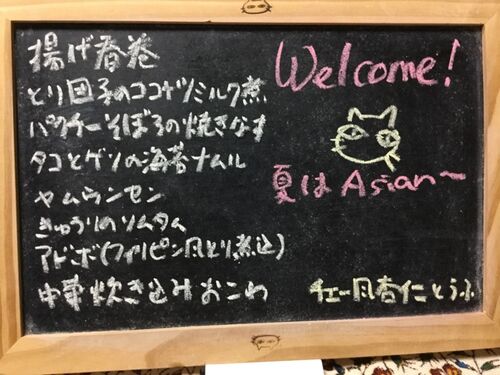 揚げ春巻
とり団子のココナツミルク煮
パクチーそぼろの焼きなす
タコとゲソの海苔ナムル
ヤムウンセン
きゅうりのソムタム
アドボ(フィリピン風とり煮込)
中華炊き込みおこわ
Welcome!
夏は Asian〜
チェー風杏仁とうふ